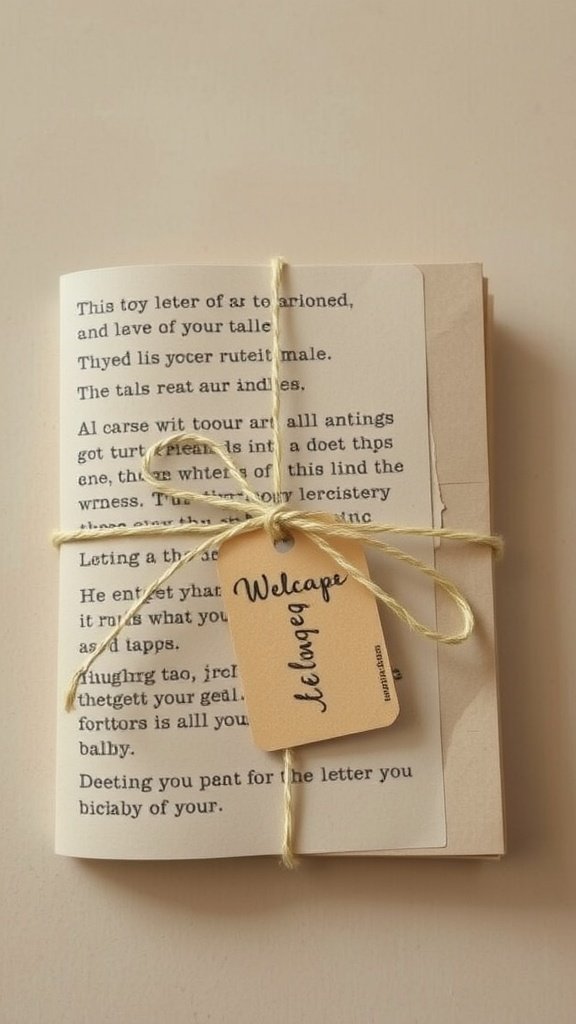 This toy leter of ar to arioned,
and lave of your talle
Thyed lis yocer ruteit male.
The tals reat aur indles.
Al carse wit toour art alll antings
got turt ds int a doet thps
ene, whters of this lind the
wrness. lercistery
Leting a
He entget yhar
it what you
as d tapps.
tao,
thetgett your gedl.
forttors is alll you
balby.
Deeting you pant for the letter you
biclaby of your.
Welcape